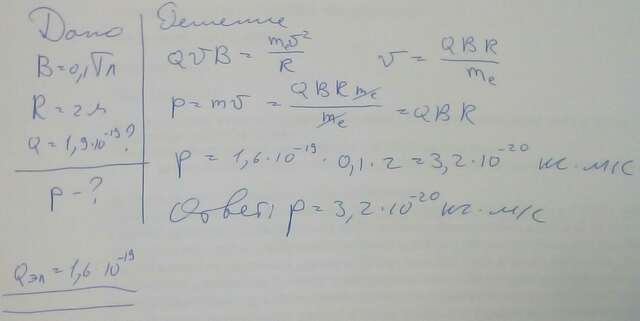 Дано
B = 0,1 Тл
R = 2 м
Q = 1,9·10⁻¹⁹?
p - ?
Qэл = 1,6·10⁻¹⁹
Решение
QVB = mv²/R    v = QBR/mₑ
p = mv = QBRmₑ/mₑ = QBR
p = 1,6·10⁻¹⁹ · 0,1 · 2 = 3,2·10⁻²⁰ кг·м/с
Ответ: p = 3,2·10⁻²⁰ кг·м/с